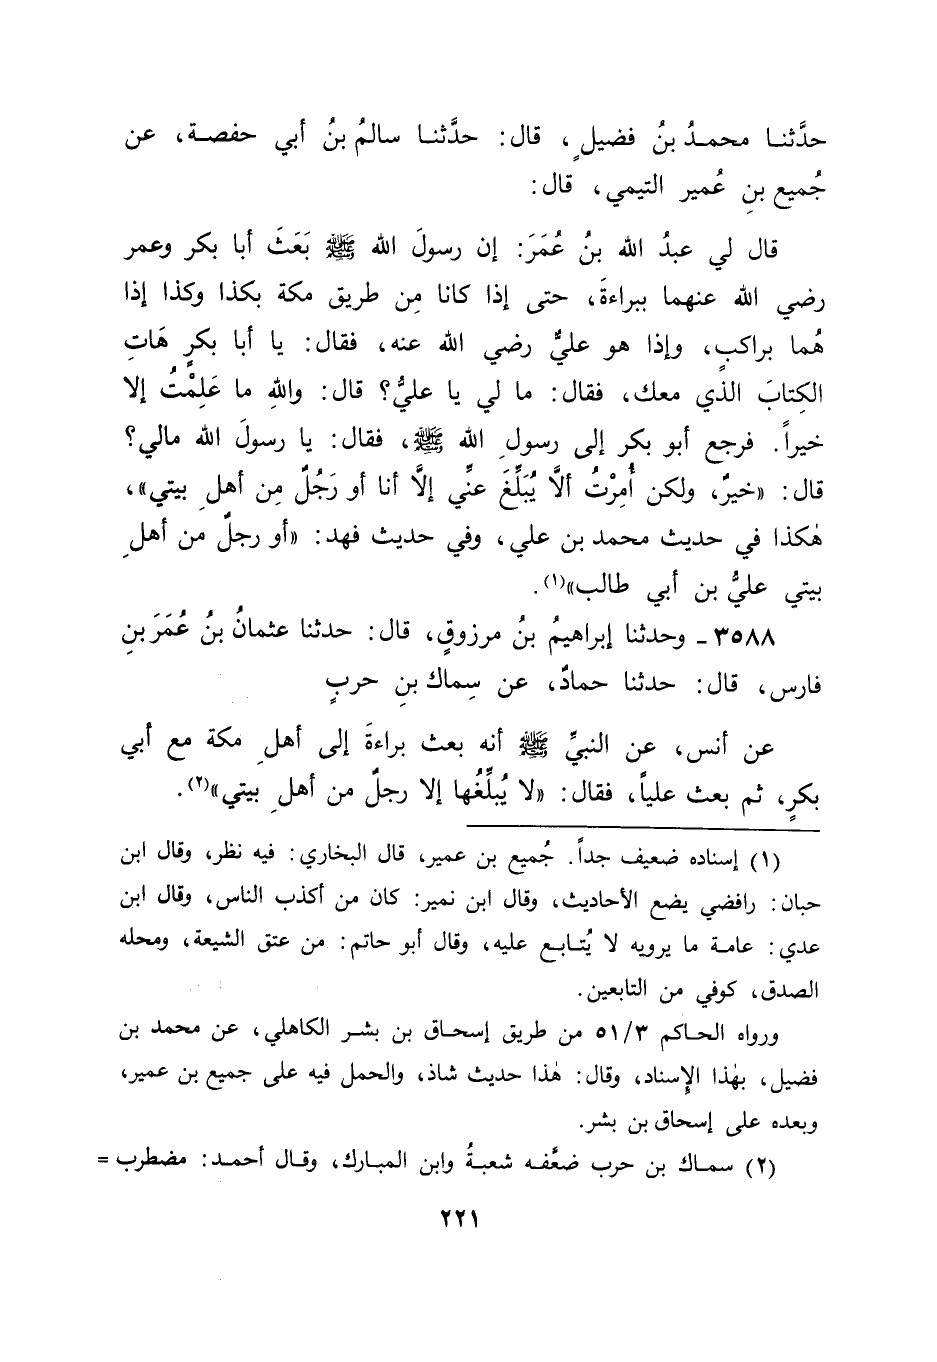 حدَّثنا محمدُ بنُ فضيلٍ، قال: حدَّثنا سالمُ بنُ أبي حفصة، عن
جُميع بنِ عُمير التيمي، قال:
قال لي عبدُ الله بنُ عُمَرَ: إن رسولَ الله ﷺ بَعَثَ أبا بكر وعمر
رضي الله عنهما ببراءةَ، حتى إذا كانا مِن طريق مكة بكذا وكذا إذا
هُما براكبٍ، وإذا هو عليٌّ رضي الله عنه، فقال: يا أبا بكرٍ هَاتِ
الكِتابَ الذي معك، فقال: ما لي يا عليُّ؟ قال: واللهِ ما عَلِمْتُ إلا
خيراً. فرجع أبو بكر إلى رسولِ الله ﷺ، فقال: يا رسولَ الله مالي؟
قال: «خيرٌ، ولكن أُمِرْتُ ألَّا يُبَلِّغَ عنِّي إلَّا أنا أو رَجُلٌ مِن أهلِ بيتي»،
هٰكذا في حديث محمد بن علي، وفي حديث فهد: «أو رجلٌ من أهلِ
بيتي عليُّ بن أبي طالب»(١).
٣٥٨٨ ـ وحدثنا إبراهيمُ بنُ مرزوقٍ، قال: حدثنا عثمانُ بنُ عُمَرَ بنِ
فارس، قال: حدثنا حمادٌ، عن سِماك بنِ حربٍ
عن أنس، عن النبيِّ ﷺ أنه بعث براءةَ إلى أهلِ مكة مع أبي
بكرٍ، ثم بعث علياً، فقال: «لا يُبلِّغُها إلا رجلٌ من أهلِ بيتي»(٢).
(١) إسناده ضعيف جداً. جُميع بن عمير، قال البخاري: فيه نظر، وقال ابن
حبان: رافضي يضع الأحاديث، وقال ابن نمير: كان من أكذب الناس، وقال ابن
عدي: عامة ما يرويه لا يُتابع عليه، وقال أبو حاتم: من عتق الشيعة، ومحله
الصدق، كوفي من التابعين.
ورواه الحاكم ٥١/٣ من طريق إسحاق بن بشر الكاهلي، عن محمد بن
فضيل، بهٰذا الإسناد، وقال: هٰذا حديث شاذ، والحمل فيه على جميع بن عمير،
وبعده على إسحاق بن بشر.
(٢) سماك بن حرب ضعَّفه شعبةُ وابن المبارك، وقال أحمد: مضطرب =
٢٢١